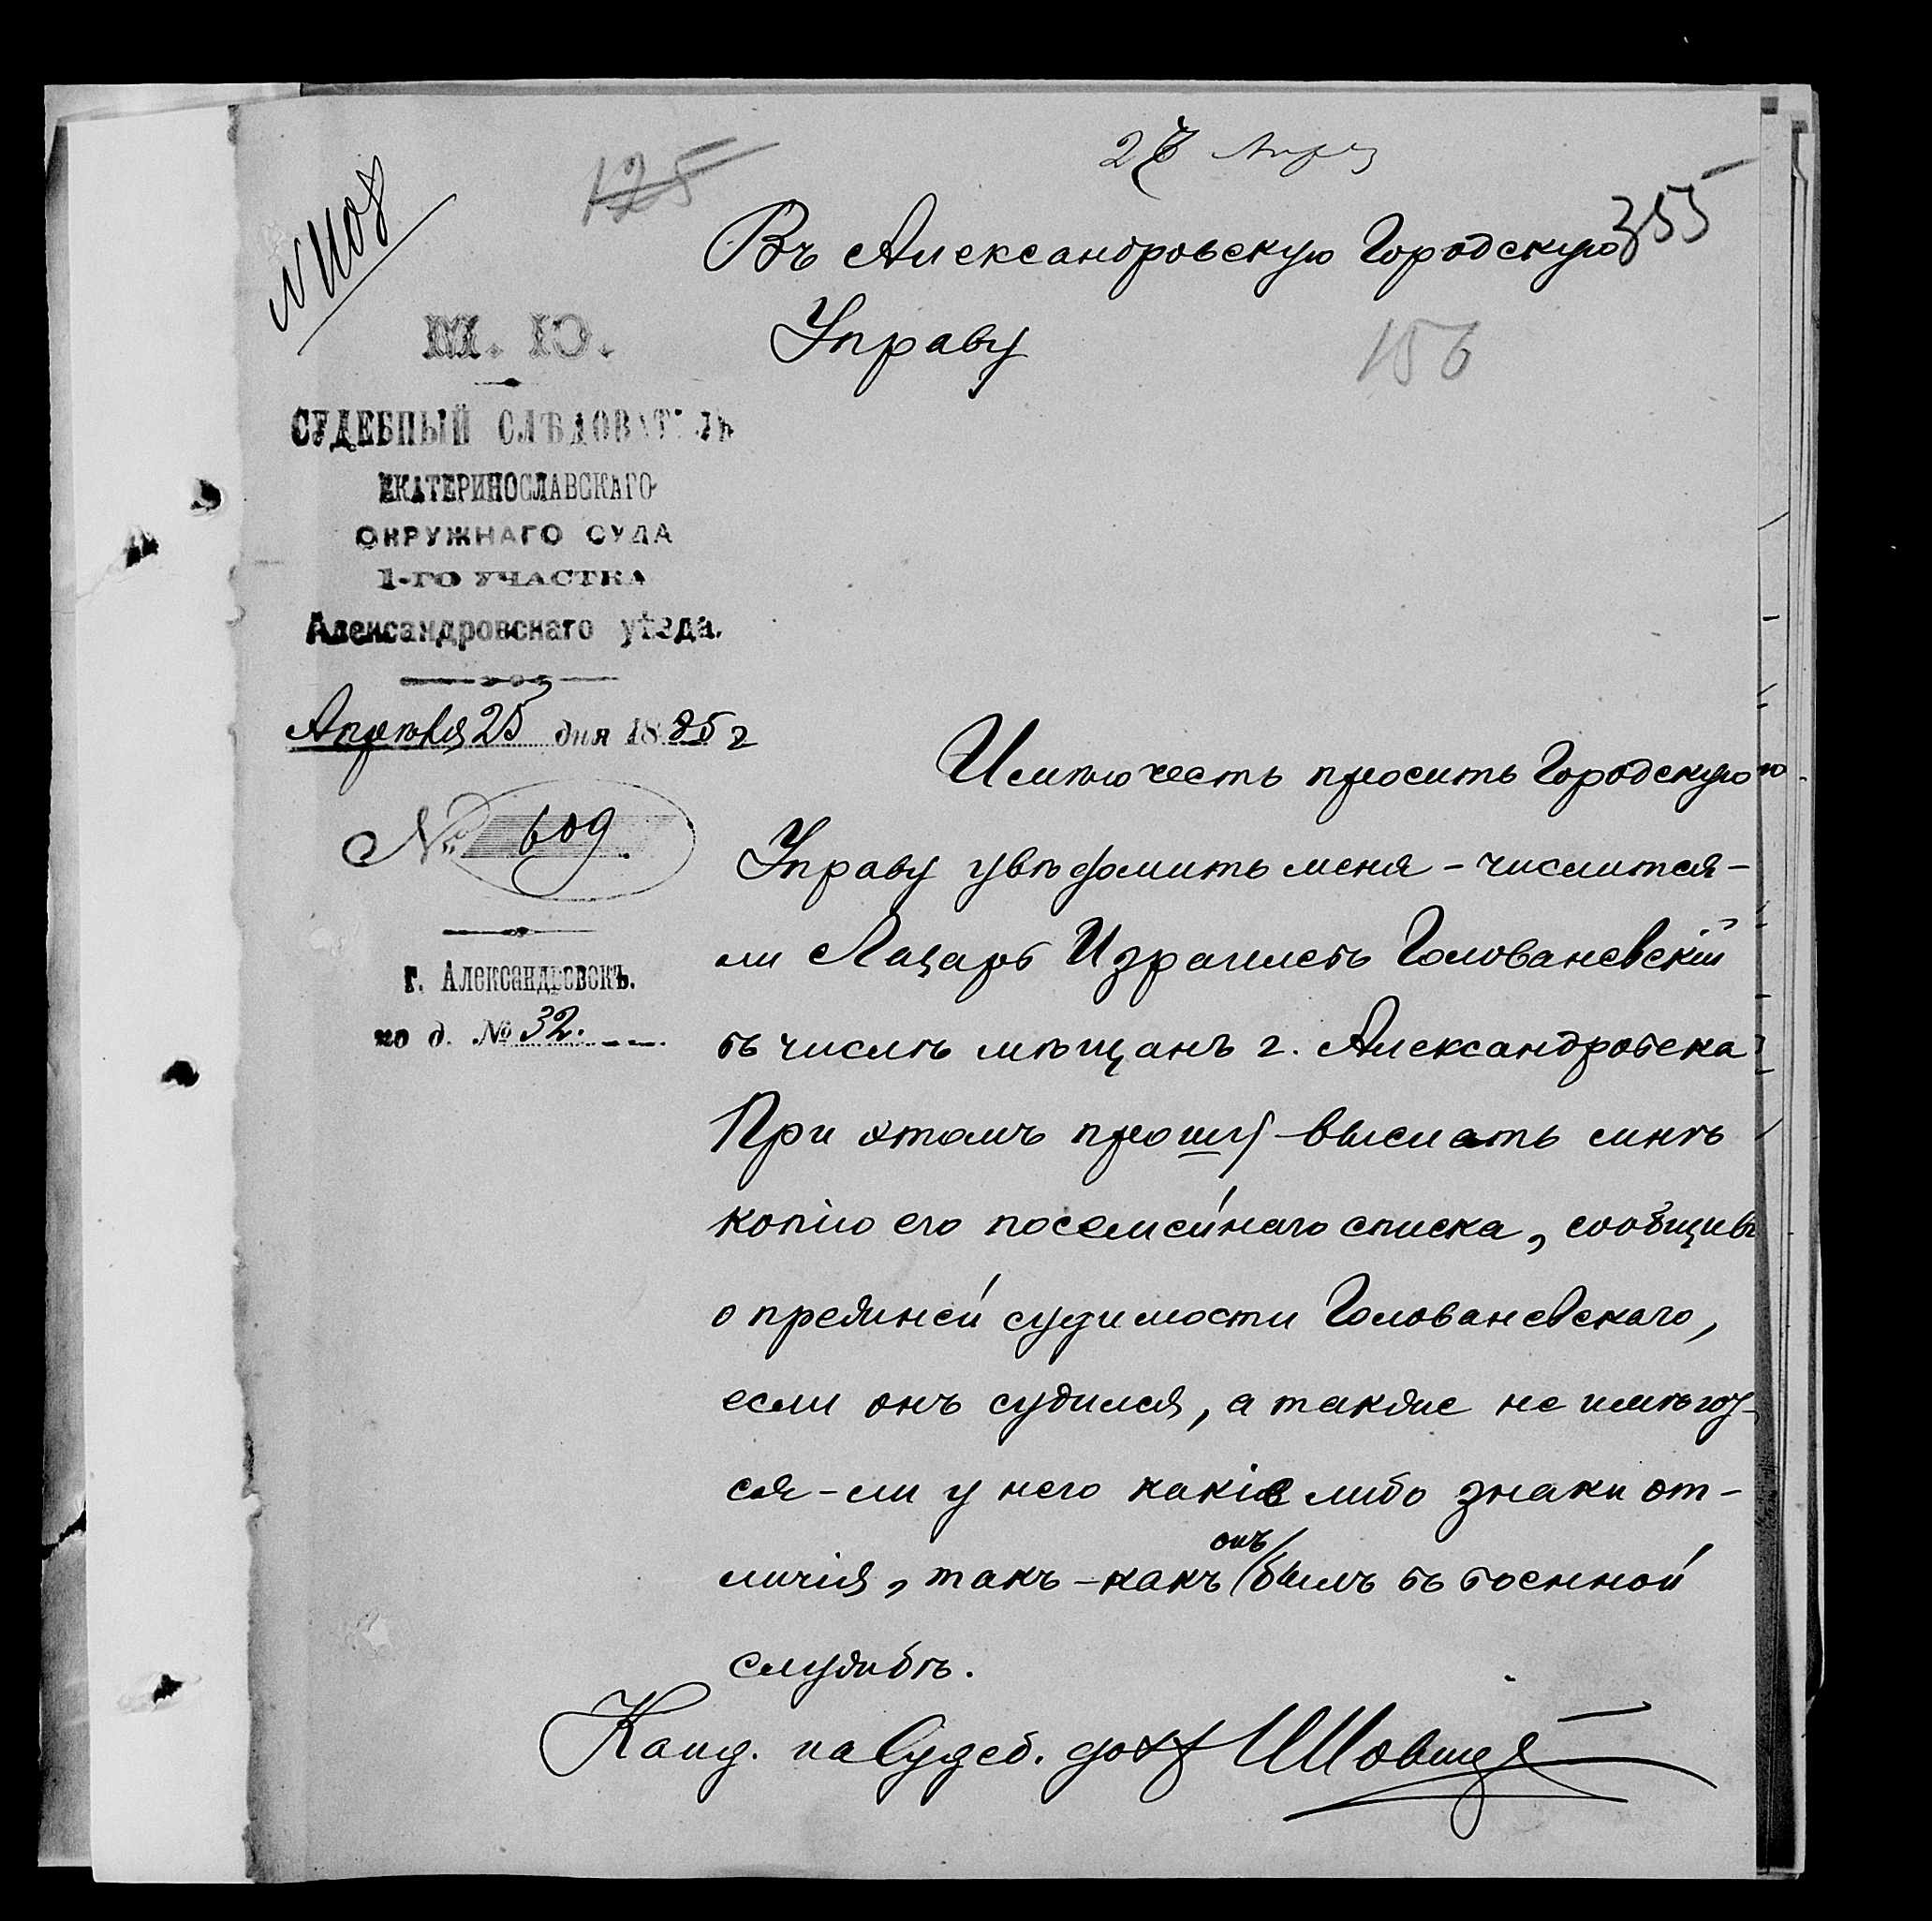 27 Апр
№ 1108
125
355
Въ Александровскую Городскую
Управу
156
М. Ю.
СУДЕБНЫЙ СЛѢДОВАТЕЛЬ
ЕКАТЕРИНОСЛАВСКАГО
ОКРУЖНАГО СУДА
1-ГО УЧАСТКА
Александровскаго уѣзда.
Апрѣля 25 дня 1885 г
№ 609
г. Александровскъ.
по д. № 32.
Имѣю честь просить Городскую
Управу увѣдомить меня - числится-
ли Лазарь Израилевъ Голованевскій
въ числѣ мѣщанъ г. Александровска
При этомъ прошу выслать мнѣ
копію его посемейнаго списка, сообщивъ
о прежней судимости Голованевскаго,
если онъ судился, а также не имѣют-
ся-ли у него какіе либо знаки от-
личія, такъ-какъ онъ былъ въ военной
службѣ.
Канд. на Судеб. дол